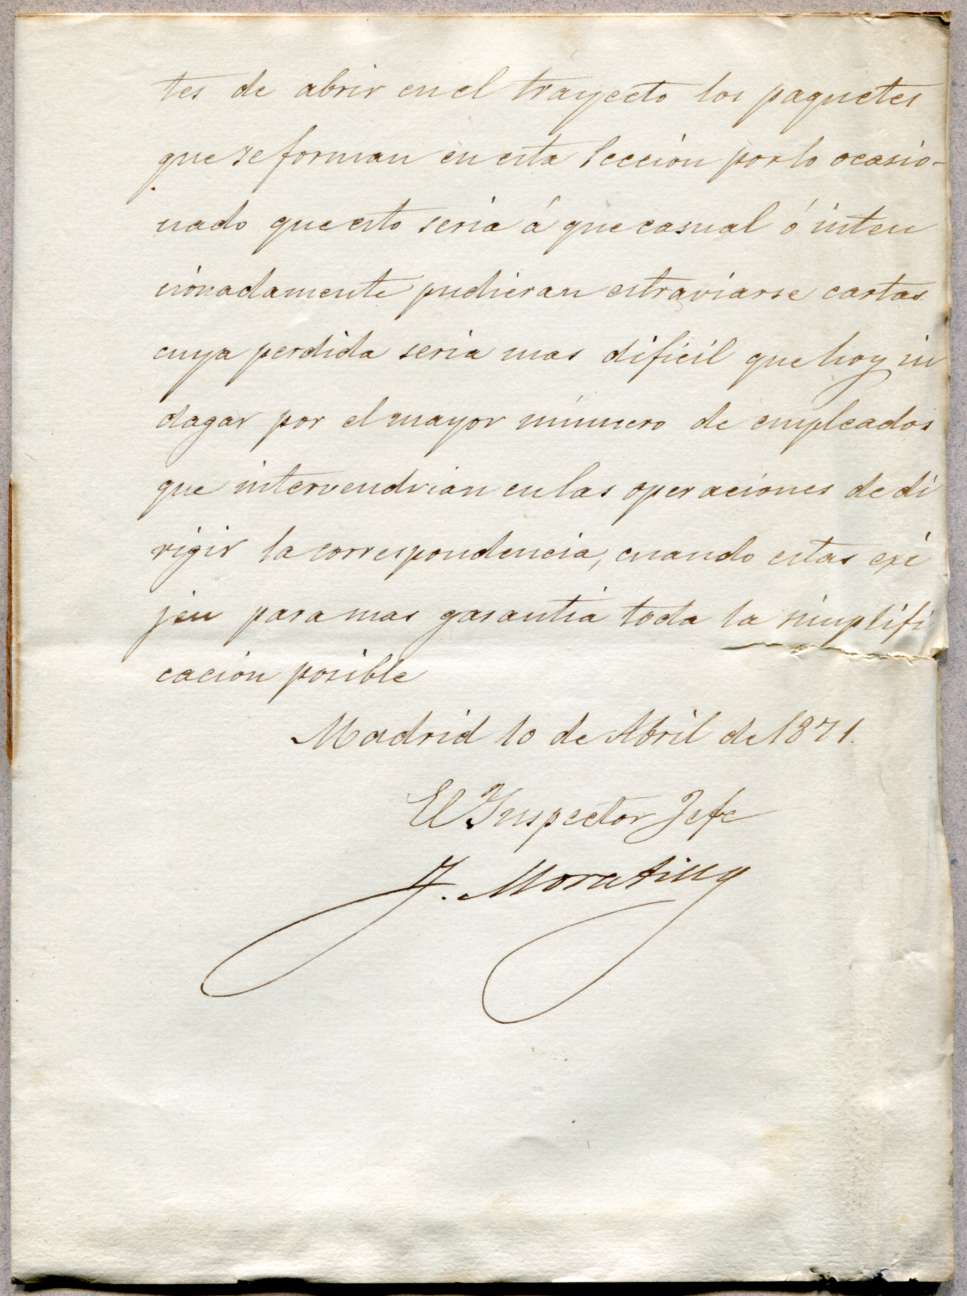 tes de abrir en el trayecto los paquetes
que se forman en esta Sección por lo ocasio-
nado que esto seria á que casual ó inten
cionadamente pudieran estraviarse cartas
cuya perdida seria mas dificil que hoy in
dagar por el mayor número de empleados
que intervendrian en las operaciones de di
rigir la correspondencia, cuando estas exi
jen para mas garantia toda la simplifi
cación posible
Madrid 10 de Abril de 1871.
El Inspector Jefe
J. Moratilla